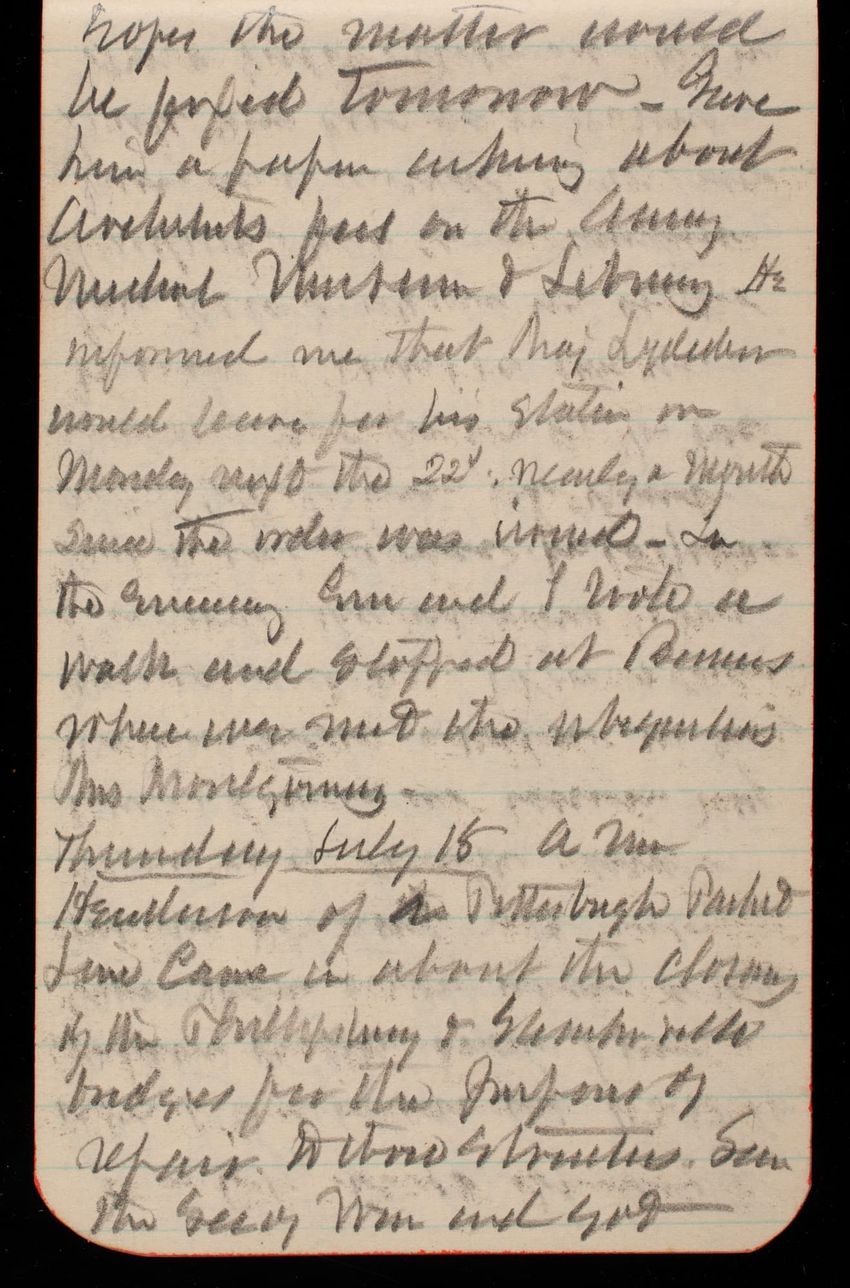 hopes the matter would
be fixed tomorrow - Gave
him a paper asking about
Architects fees on the Army
Medical Museum & Library He
informed me that Maj Lydecker
would leave for his station on
Monday next the 22d, nearly a Month
since the order was issued - In
the Evening Em and I took a
walk and stopped at
where we met the ubiquitous
Mrs Montgomery -
Thursday July 18 A Mr
Henderson of the Pittsburgh Packet
Line Came in about the closing
of the Phillipsburg & Steubenville
bridges for the purpose of
repair to those structures. Saw
the Secy War and got